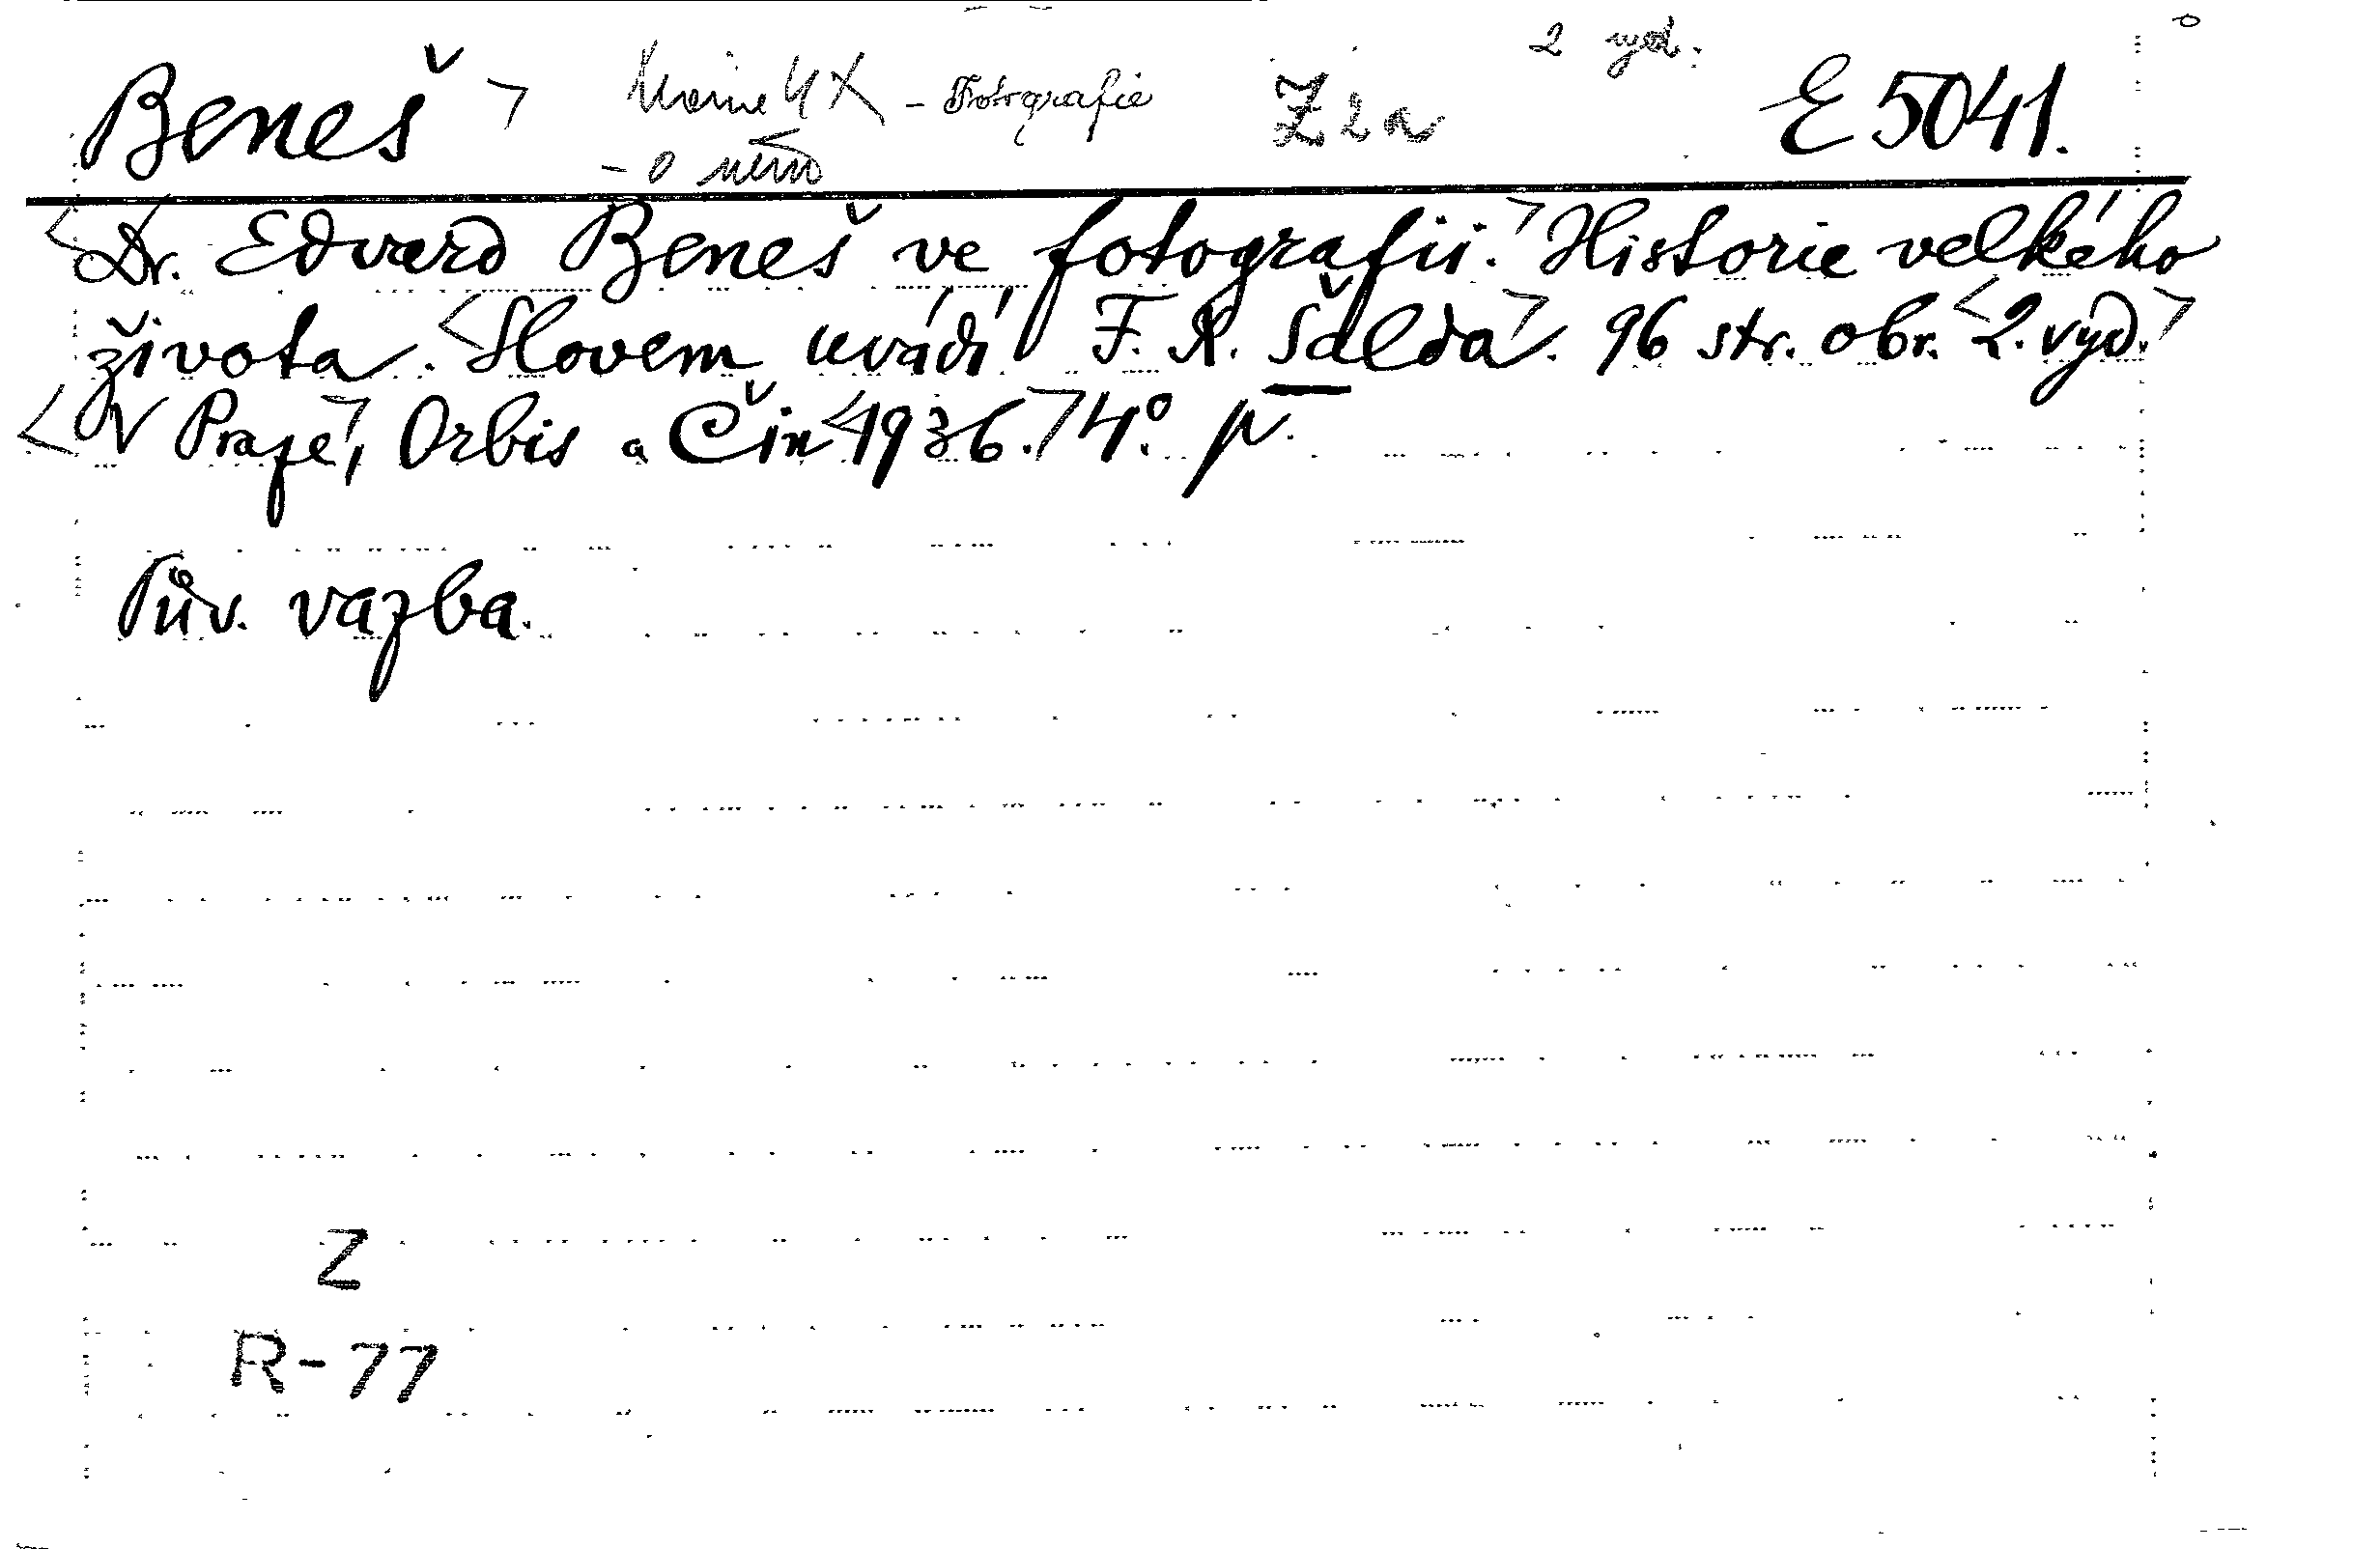 2 vyd.
Beneš - Fotografie Z 2a E 5041.
- o něm
Dr. Edvard Beneš ve fotografii. Historie velkého
života. Slovem uvádí F. X. Šalda. 96 str. obr. 2. vyd.
V Praze, Orbis a Čin 1936. 4°. p.
Pův. vazba.
Z
R-77